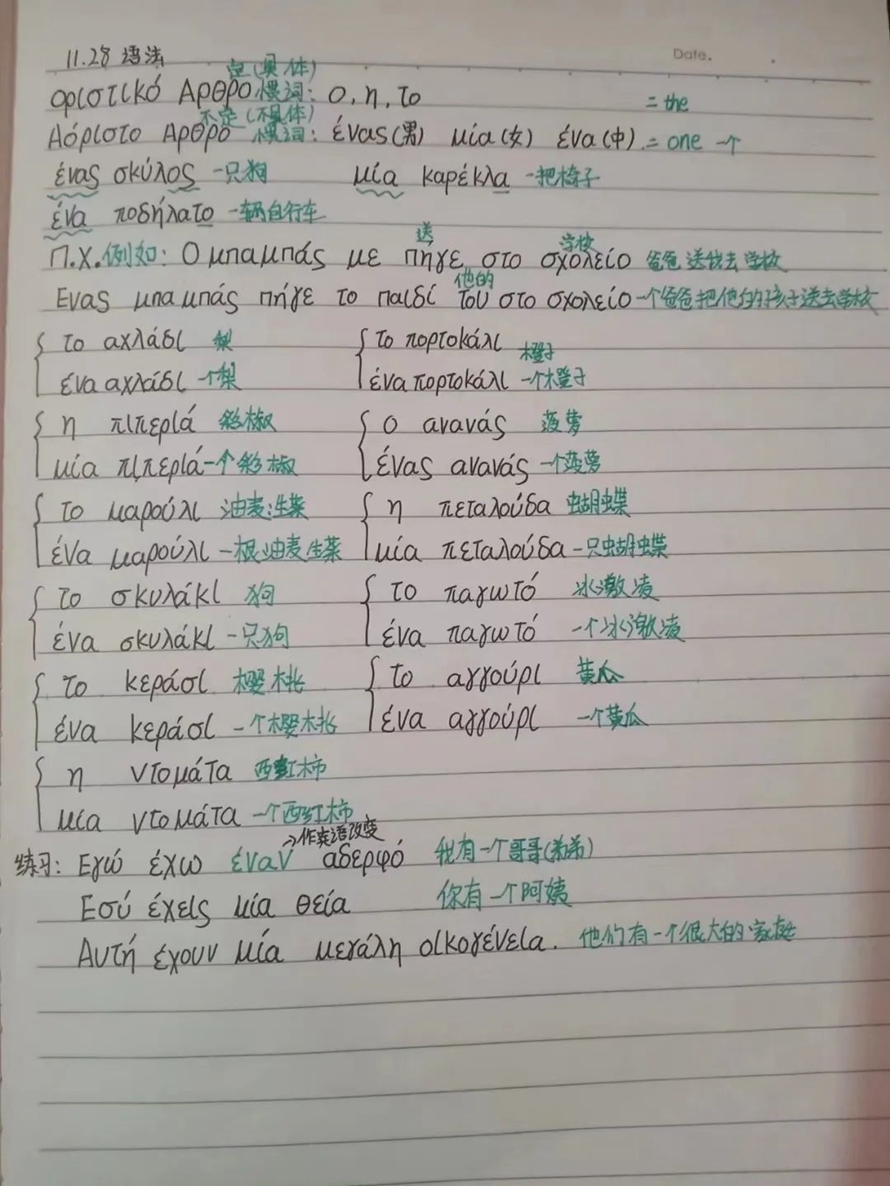 11.28 语法
Date.
定(具体)
οριστικό Αρθρο 惯词: ο, η, το = the
不定(不具体)
Αόριστο Αρθρο 惯词: ένας(男) μία(女) ένα(中) = one 一个
ένας σκύλος 一只狗 μία καρέκλα 一把椅子
ένα ποδήλατο 一辆自行车
送 学校
Π.Χ.例如: Ο μπαμπάς με πήγε στο σχολείο 爸爸送我去学校
他的
Ενας μπαμπάς πήγε το παιδί του στο σχολείο 一个爸爸把他的孩子送去学校
το αχλάδι 梨 το πορτοκάλι 橙子
ένα αχλάδι 一个梨 ένα πορτοκάλι 一个橙子
η πιπεριά 彩椒 ο ανανάς 菠萝
μία πιπεριά 一个彩椒 ένας ανανάς 一个菠萝
το μαρούλι 油麦生菜 η πεταλούδα 蝴蝶
ένα μαρούλι 一根油麦生菜 μία πεταλούδα 一只蝴蝶
το σκυλάκι 狗 το παγωτό 冰激凌
ένα σκυλάκι 一只狗 ένα παγωτό 一个冰激凌
το κεράσι 樱桃 το αγγούρι 黄瓜
ένα κεράσι 一个樱桃 ένα αγγούρι 一个黄瓜
η ντομάτα 西红柿
μία ντομάτα 一个西红柿
→作宾语改变
练习: Εγώ έχω έναν αδερφό 我有一个哥哥(弟弟)
Εσύ έχεις μία θεία 你有一个阿姨
Αυτή έχουν μία μεγάλη οικογένεια. 他们有一个很大的家庭